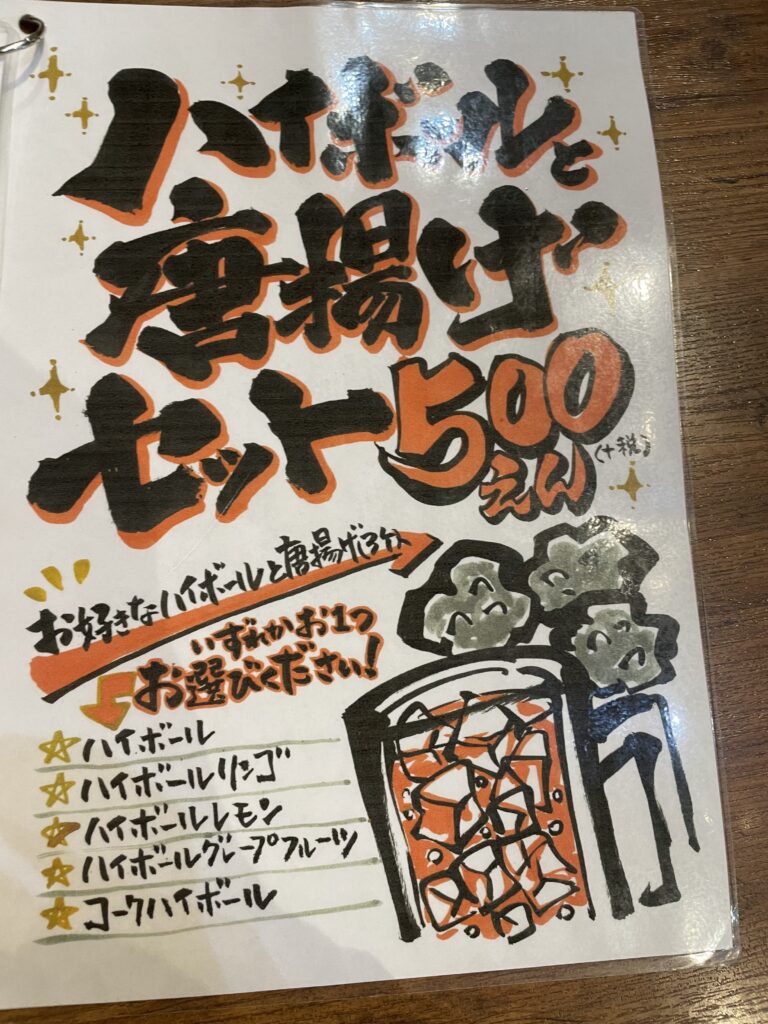 ハイボールと
唐揚げ
セット500
えん(+税)
お好きなハイボールと唐揚げ(3ケ)
いずれかお1つ
お選びください!
ハイボール
ハイボールリンゴ
ハイボールレモン
ハイボールグレープフルーツ
コークハイボール